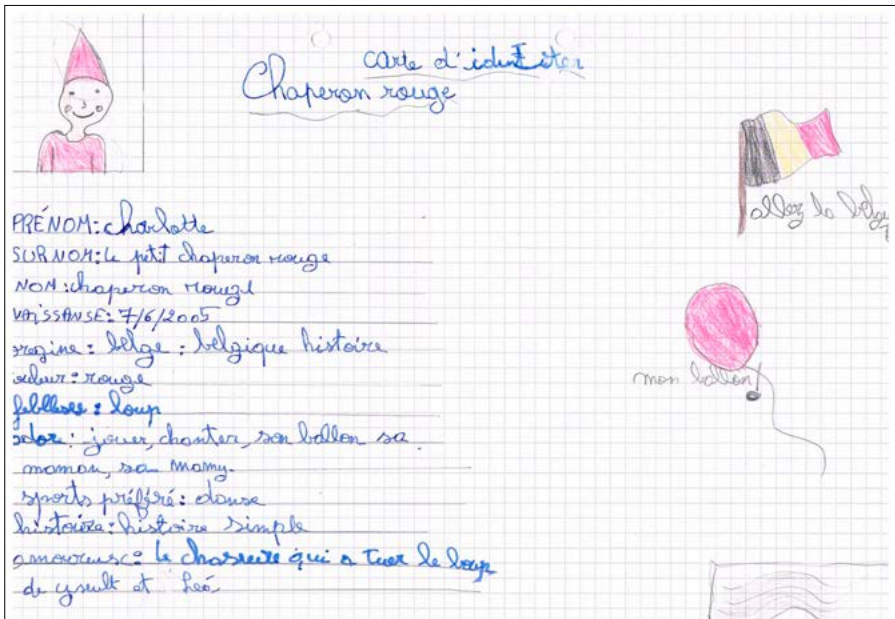 carte d'identiter
Chaperon rouge
allez la belge
PRÉNOM: charlotte
SURNOM: le petit chaperon rouge
NOM: chaperon rouge
NAISSANSE: 7/6/2005
orogine: belge: belgique histoire
couleur: rouge
mon ballon
febllesse: loup
ador: jouer, chanter, son ballon sa
maman, sa mamy.
sports préféré: danse
histoire: histoire simple
amoureuse: le chasseure qui a tuer le loup
de ysult et Leó